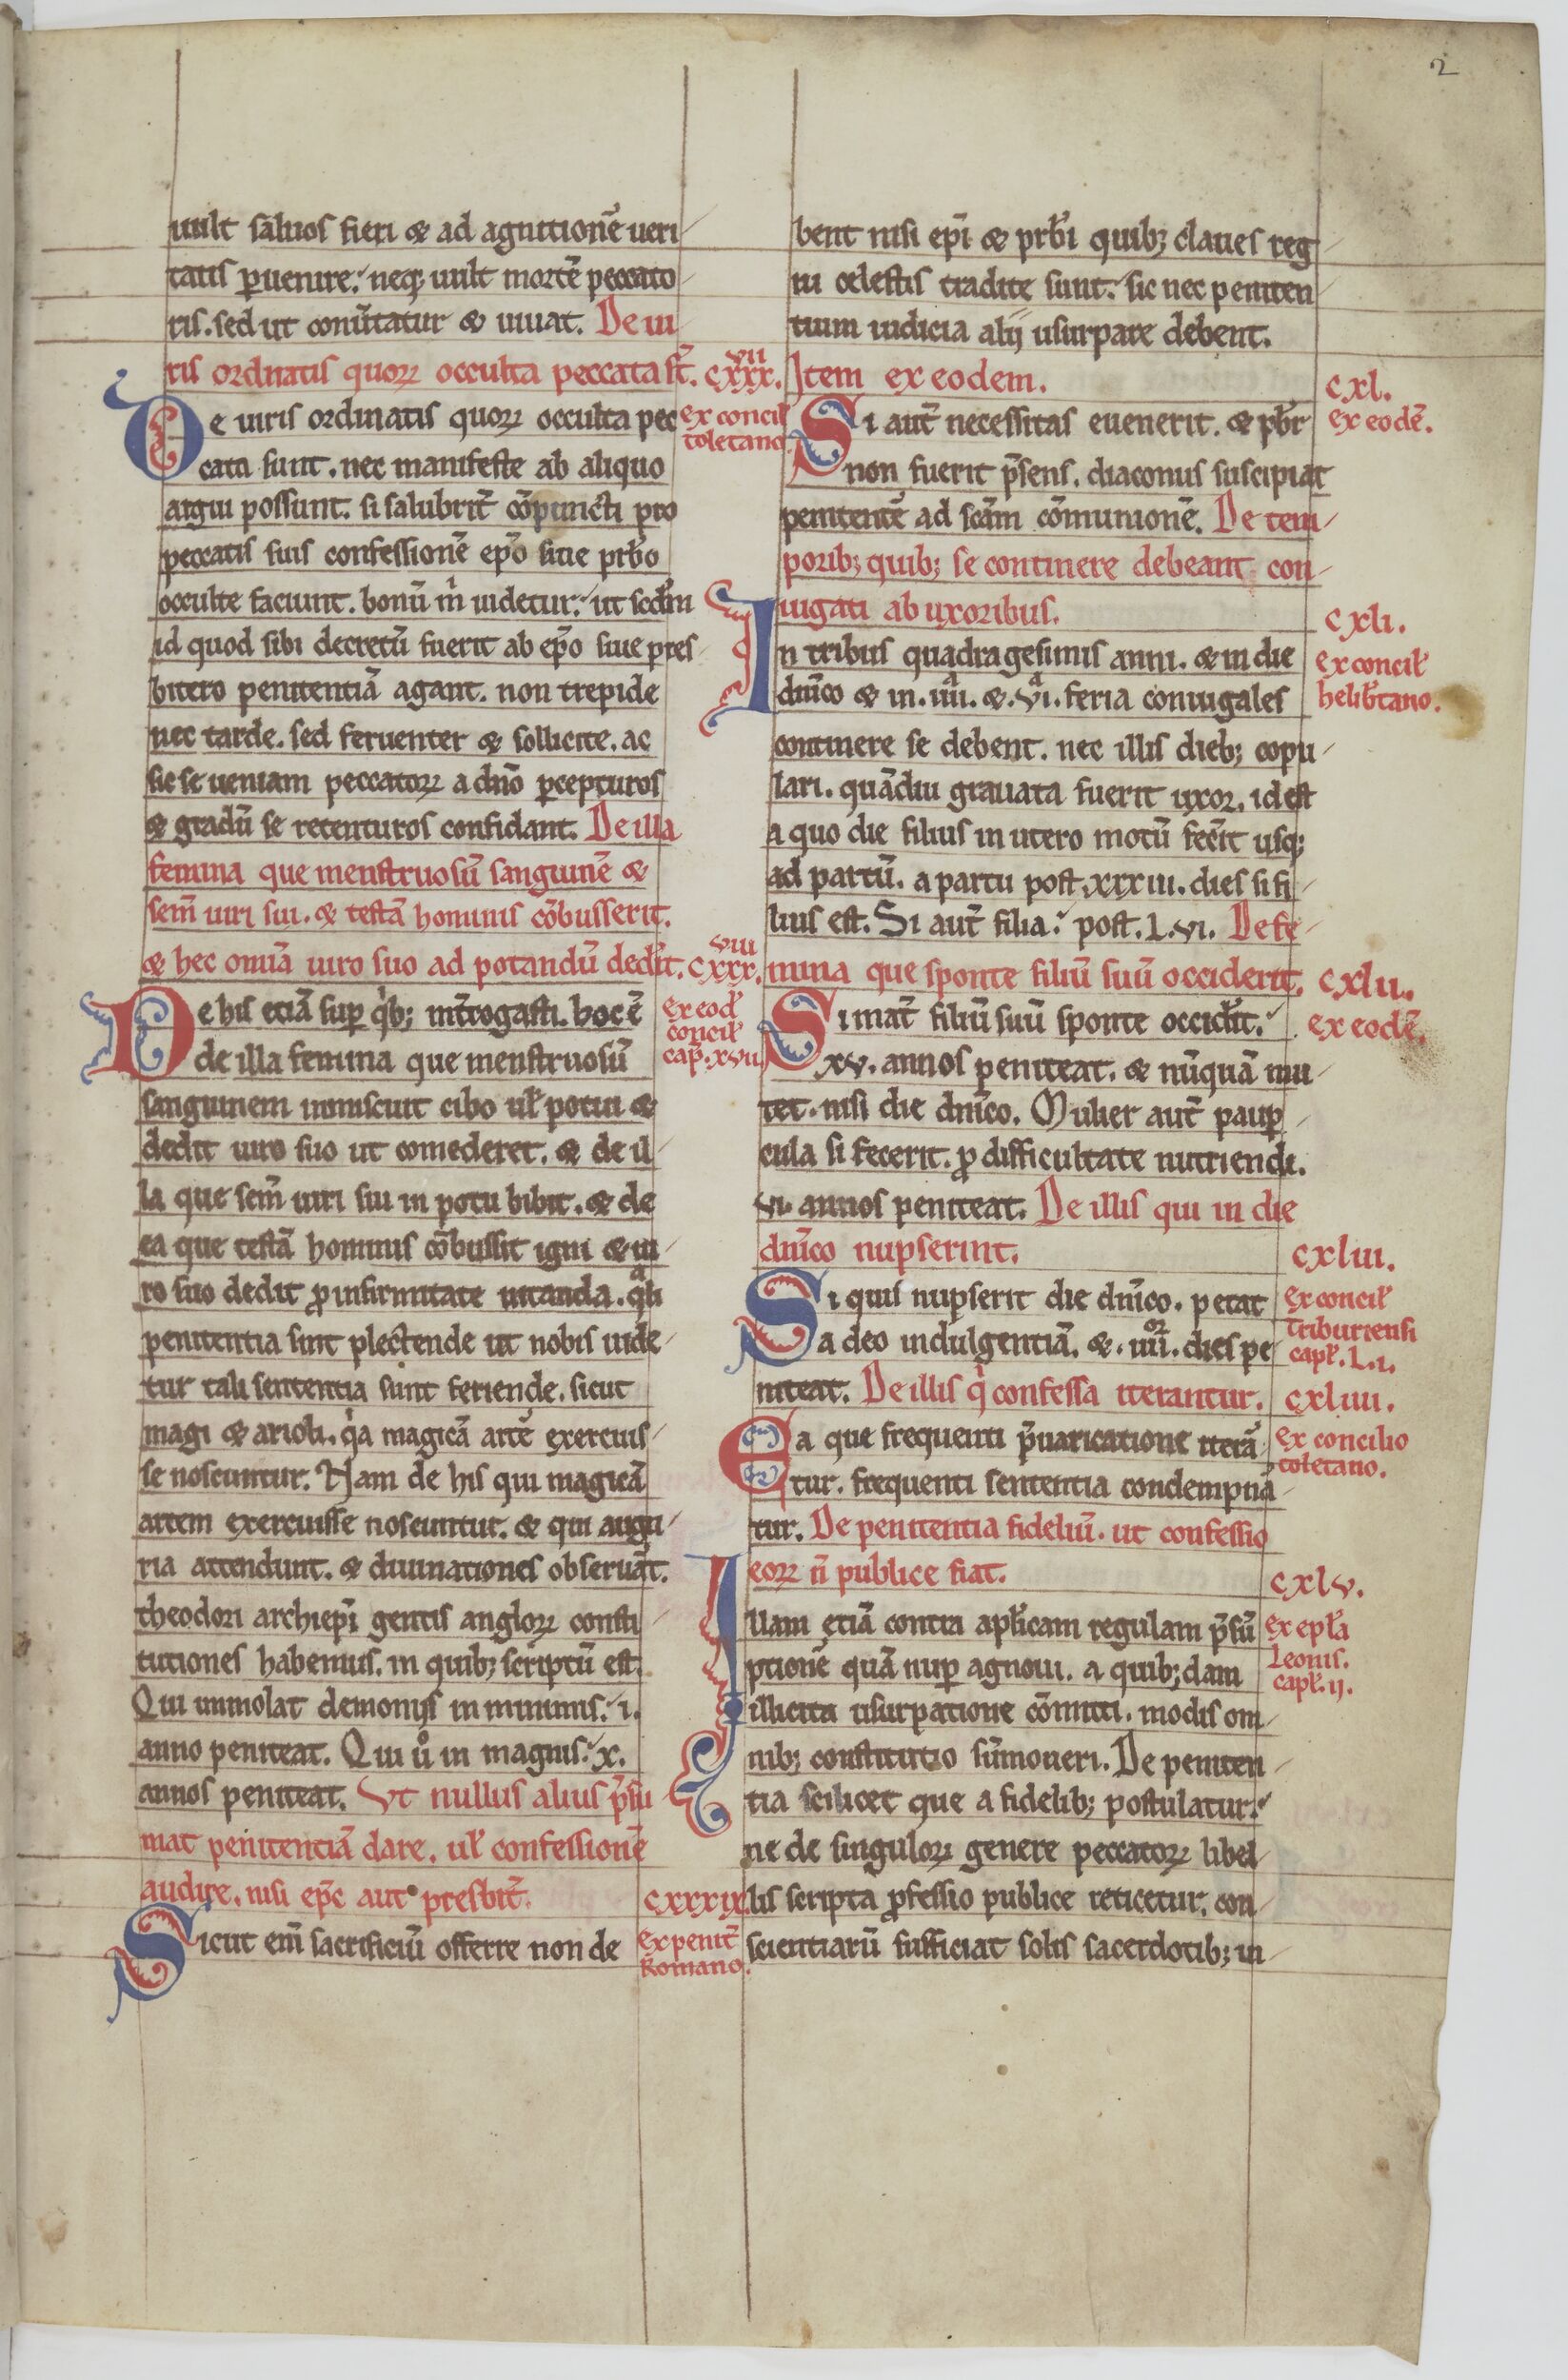 2
uult saluos fieri & ad agnitionē ueri
tatis ꝑuenire. neq; uult mortē peccato
ris. sed ut conũtatur & uiuat. De ui
ris ordinatis quoꝝ occulta peccata sт̄. cxxx.
vii
De uiris ordinatis quoꝝ occulta pec
ex concil̕
toletano.
cata sunt. nec manifeste ab aliquo
argui possunt. si salubrit̄ cōpuncti pro
peccatis suis confessionē ep̄o siue prb̄o
occulte faciunt. bonū m̄ uidetur. ut scd̄m
id quod sibi decretū fuerit ab ep̄o siue pres
bitero penitentiā agant. non trepide
nec tarde. sed feruenter & sollicite. ac
sic se ueniam peccatoꝝ a dn̄o ꝑcepturos
& gradū se retenturos confidant. De illa
femina que menstruosū sanguinē &
sem̄ uiri sui. & testā hominis cōbusserit.
& hec omīa uiro suo ad potandū dedit̄. cxxx.
viii
De his etiā suꝑ qͥb; int̄rogasti. hoc ē
ex eod̕
concil̕
cap̄. xvii
de illa femina que menstruosū
sanguinem inmiscuit cibo ul̕ potui &
dedit uiro suo ut comederet. & de il
la que sem̄ uiri sui in potu bibit. & de
ea que testā hominis cōbussit igni & ui
ro suo dedit ꝓ infirmitate uitanda. qͣli
penitentia sint plectende ut nobis uide
tur tali sententia sunt feriende. sicut
magi & arioli. qͥa magicā artē exercuis
se noscuntur. Nam de his qui magicā
artem exercuisse noscuntur. & qui augu
ria attendunt. & diuinationes obseruāt.
theodori archiep̄i gentis angloꝝ consti
tutiones habemus. in quib; scriptū est.
Qui immolat demonijs in minimis. i.
anno peniteat. Qui uͦ in magnis. x.
annos peniteat. Ut nullus alius p̄su
mat penitentiā dare. ul̕ confessionē
audire. nisi ep̄c aut presbit̄. cxxxix.
Sicut em̄ sacrificiū offerre non de
ex penit̄
Romano.
bent nisi ep̄i & prb̄i quib; claues reg
ni celestis tradite sunt. sic nec peniten
tium iudicia alij usurpare debent.
Item ex eodem. cxl.
Si aut̄ necessitas euenerit. & pb̄r
ex eodē.
non fuerit p̄sens. diaconus suscipiat
penitentē ad scām cōmunionē. De tem
porib; quib; se continere debeant con
iugati ab uxoribus. cxli.
In tribus quadragesimis anni. & in die
ex concil̕
helib̄tano.
dn̄ico & in. iiiiͣ. &. viͣ. feria coniugales
continere se debent. nec illis dieb; copu
lari. quādiu grauata fuerit uxor. id est
a quo die filius in utero motū fec̄it usq;
ad partū. a partu post. xxxiii. dies si fi
lius est. Si aut̄ filia. post. L.vi. De fe
mina que sponte filiū suū occiderit. cxlii.
Si mat̄ filiū suū sponte occidit̄.
ex eodē.
xv. annos peniteat. & nūquā mu
tet. nisi die dn̄ico. Mulier aut̄ pauꝑ
cula si fecerit. ꝓ difficultate nutriendi.
vi. annos peniteat. De illis qui in die
dn̄ico nupserint. cxliii.
Si quis nupserit die dn̄ico. petat
ex concil̕
Triburiensi
cap̄l. L.i.
a deo indulgentiā. &. iiiiᵒʳ. dies pe
niteat. De illis qͥ confessa iterantur. cxliiii.
Ea que frequenti p̄uaricatione iterā
ex concilio
toletano.
tur. frequenti sententia condempnā
tur. De penitentia fideliū. ut confessio
eoꝝ n̄ publice fiat. cxlv.
Illam etiā contra apl̄icam regulam p̄sū
ex epl̄a
Leonis.
cap̄l. ij.
ptionē quā nuꝑ agnoui. a quib;dam
illicita usurpatione cōmitti. modis om
nib; constitutio sūmoueri. De peniten
tia scilicet que a fidelib; postulatur.
ne de singuloꝝ genere peccatoꝝ libel
lis scripta ꝓfessio publice reticetur. con
scientiarū sufficiat solis sacerdotib; in